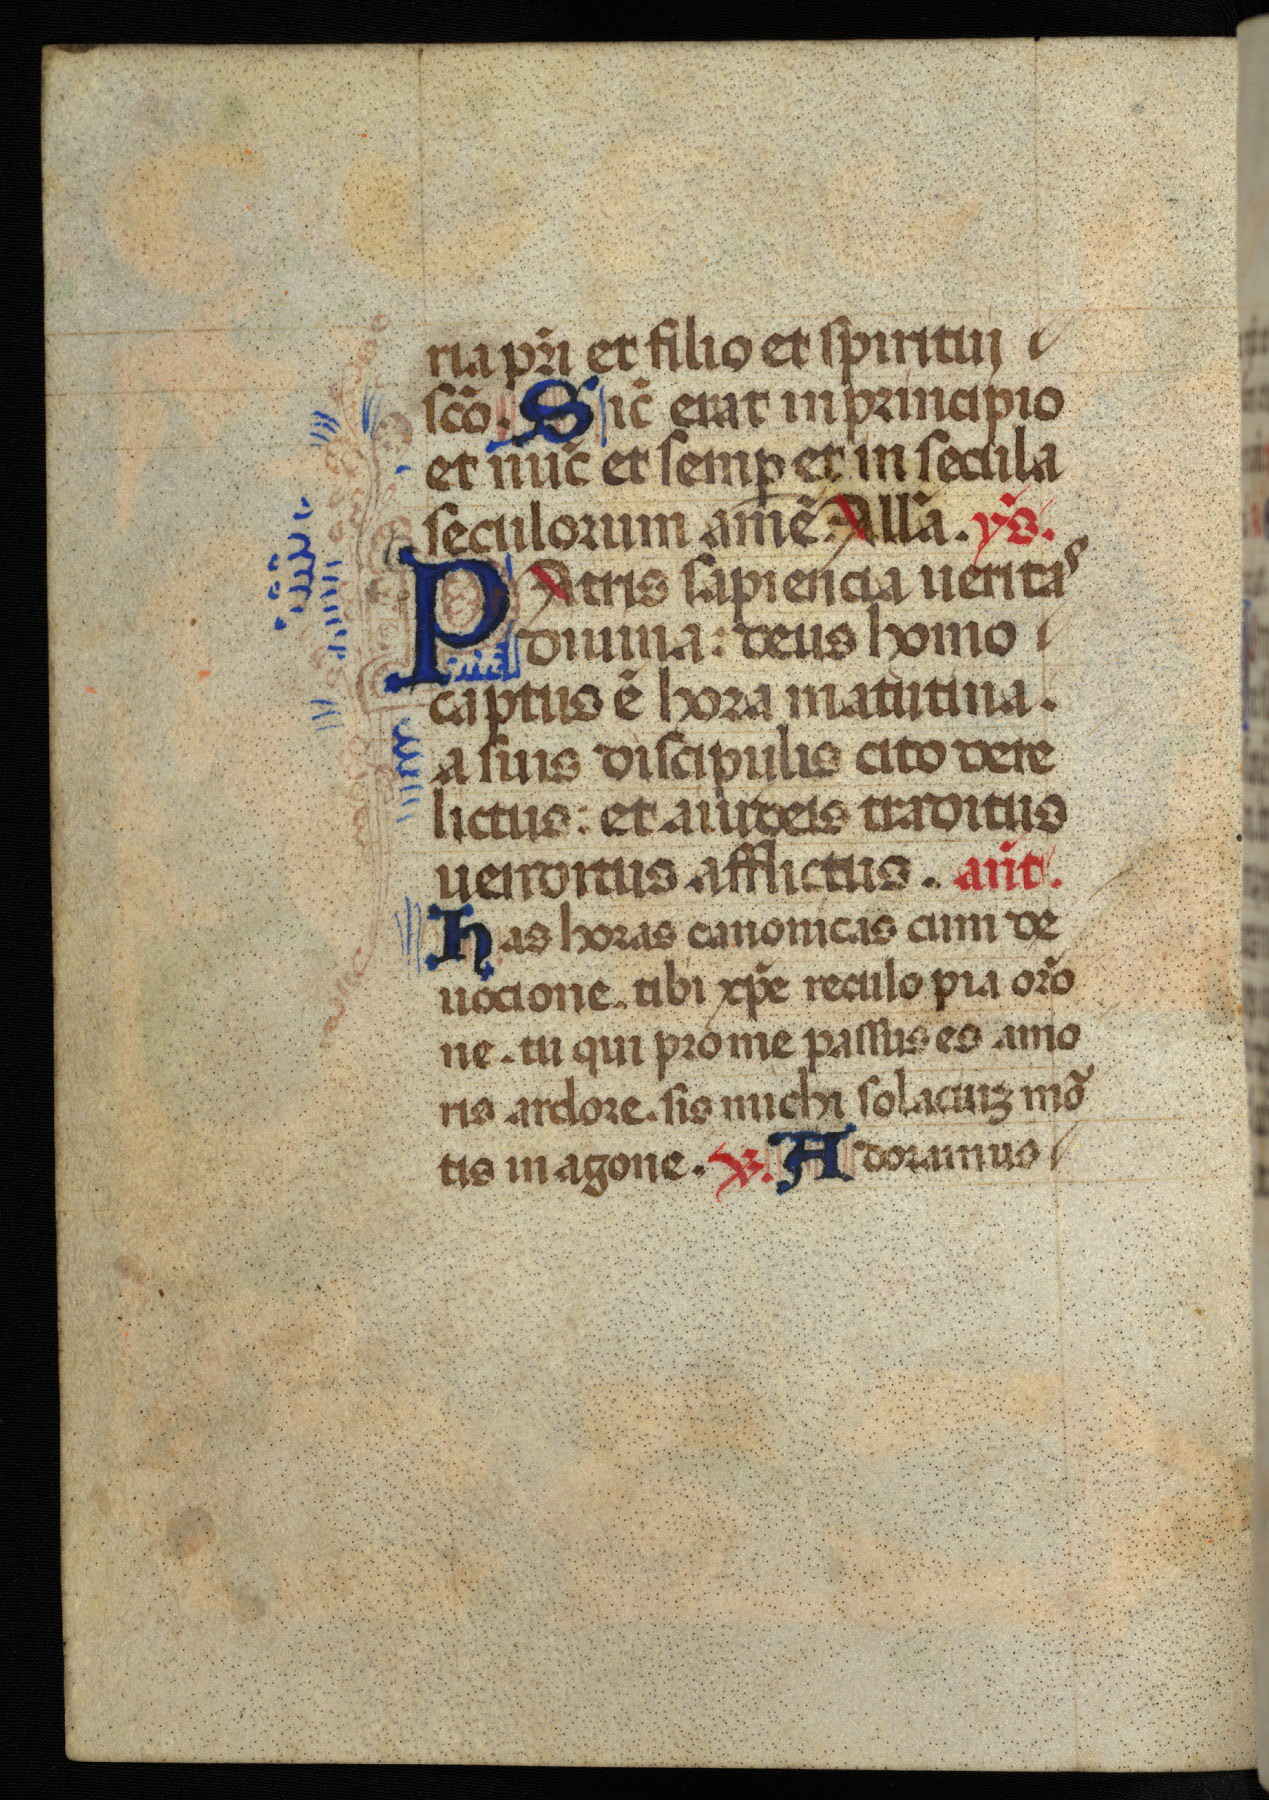 ria pr̃i et filio et spiritui
sc̃o. Sic̃ erat in principio
et nuc̃ et semp et in secula
seculorum amẽ. Allã. ỹs.
PAtris sapiencia ueritaˢ
diuina: deus homo
captus ẽ hora matutina.
a suis discipulis cito dere
lictus: et a iudeis traditus
uenditus afflictus. añt.
has horas canonicas cum de
uocione. tibi xp̃e reculo pia orõ
ne. tu qui pro me passus es amo
ris ardore. sis michi solaciuȝ mõ
tis in agone. ℣. Adoramus